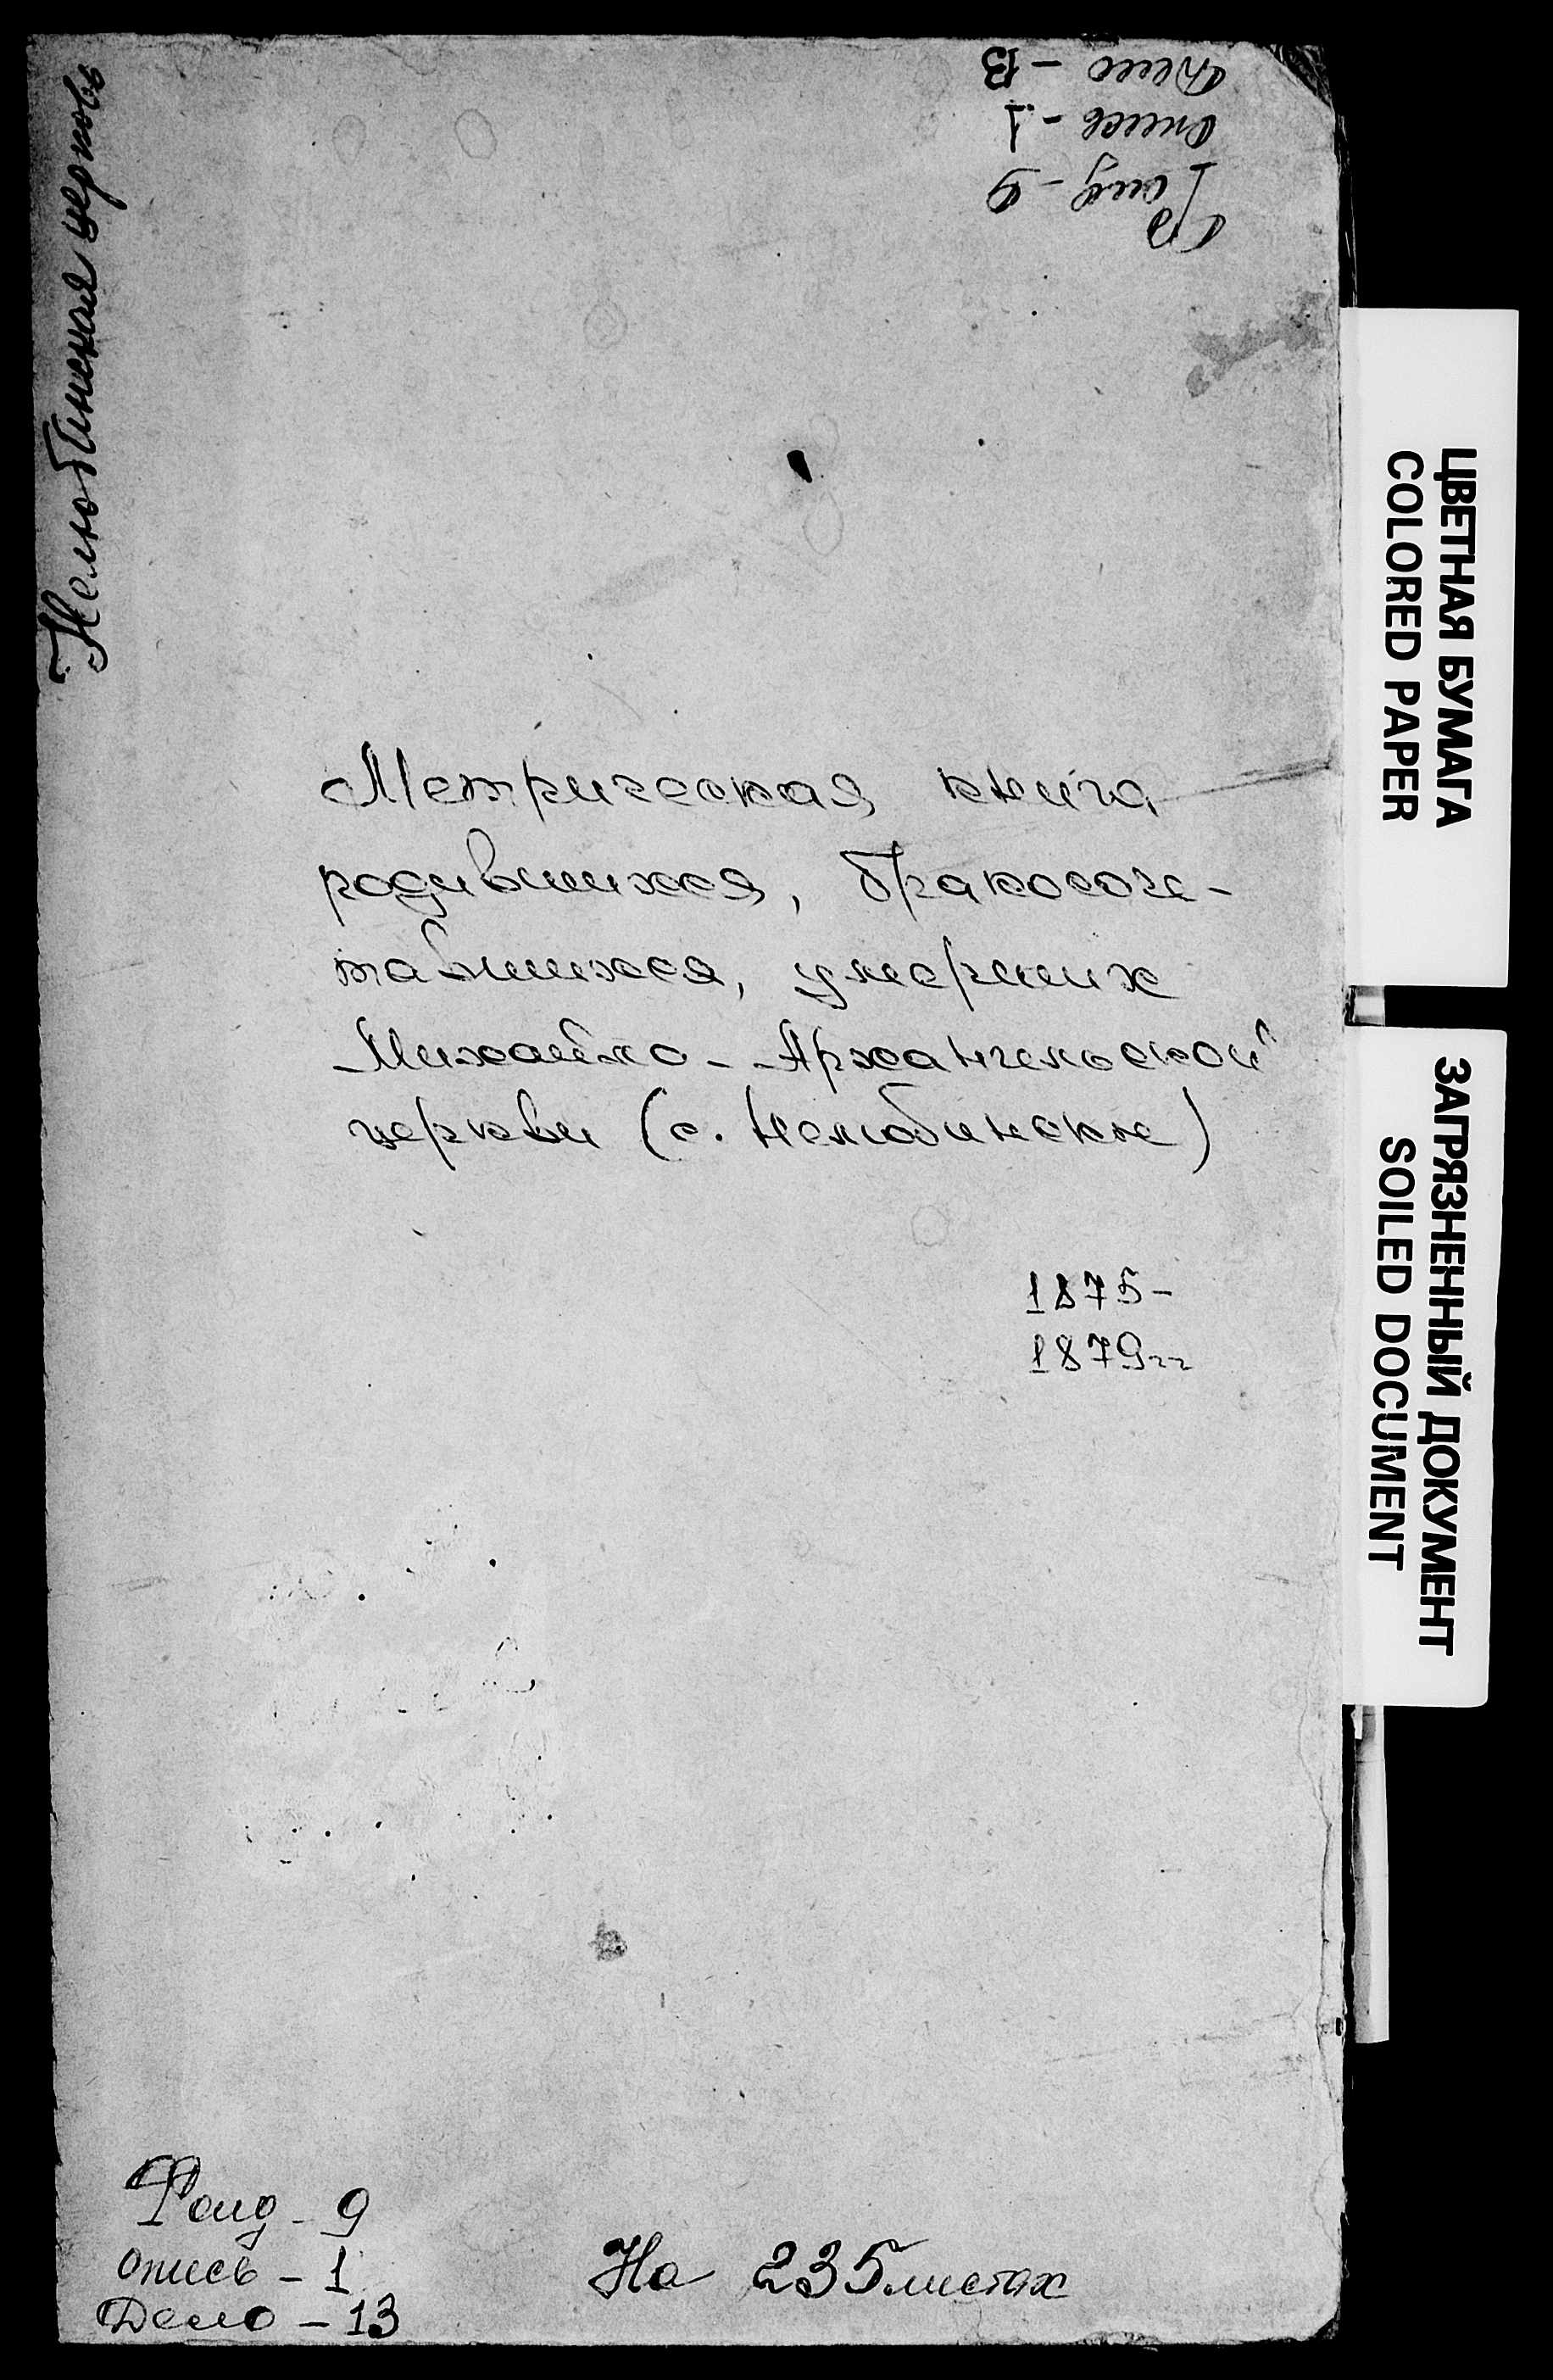 Нелюбинская церковь
Фонд - 9
опись - 1
Дело - 13
Метрическая книга
родившихся, бракосоче-
тавшихся, умерших
Михайло-Архангельской
церкви (с. Нелюбинское)
1875-
1879гг
Фонд - 9
опись - 1
Дело - 13
На 235 листах
ЦВЕТНАЯ БУМАГА
COLORED PAPER
ЗАГРЯЗНЕННЫЙ ДОКУМЕНТ
SOILED DOCUMENT